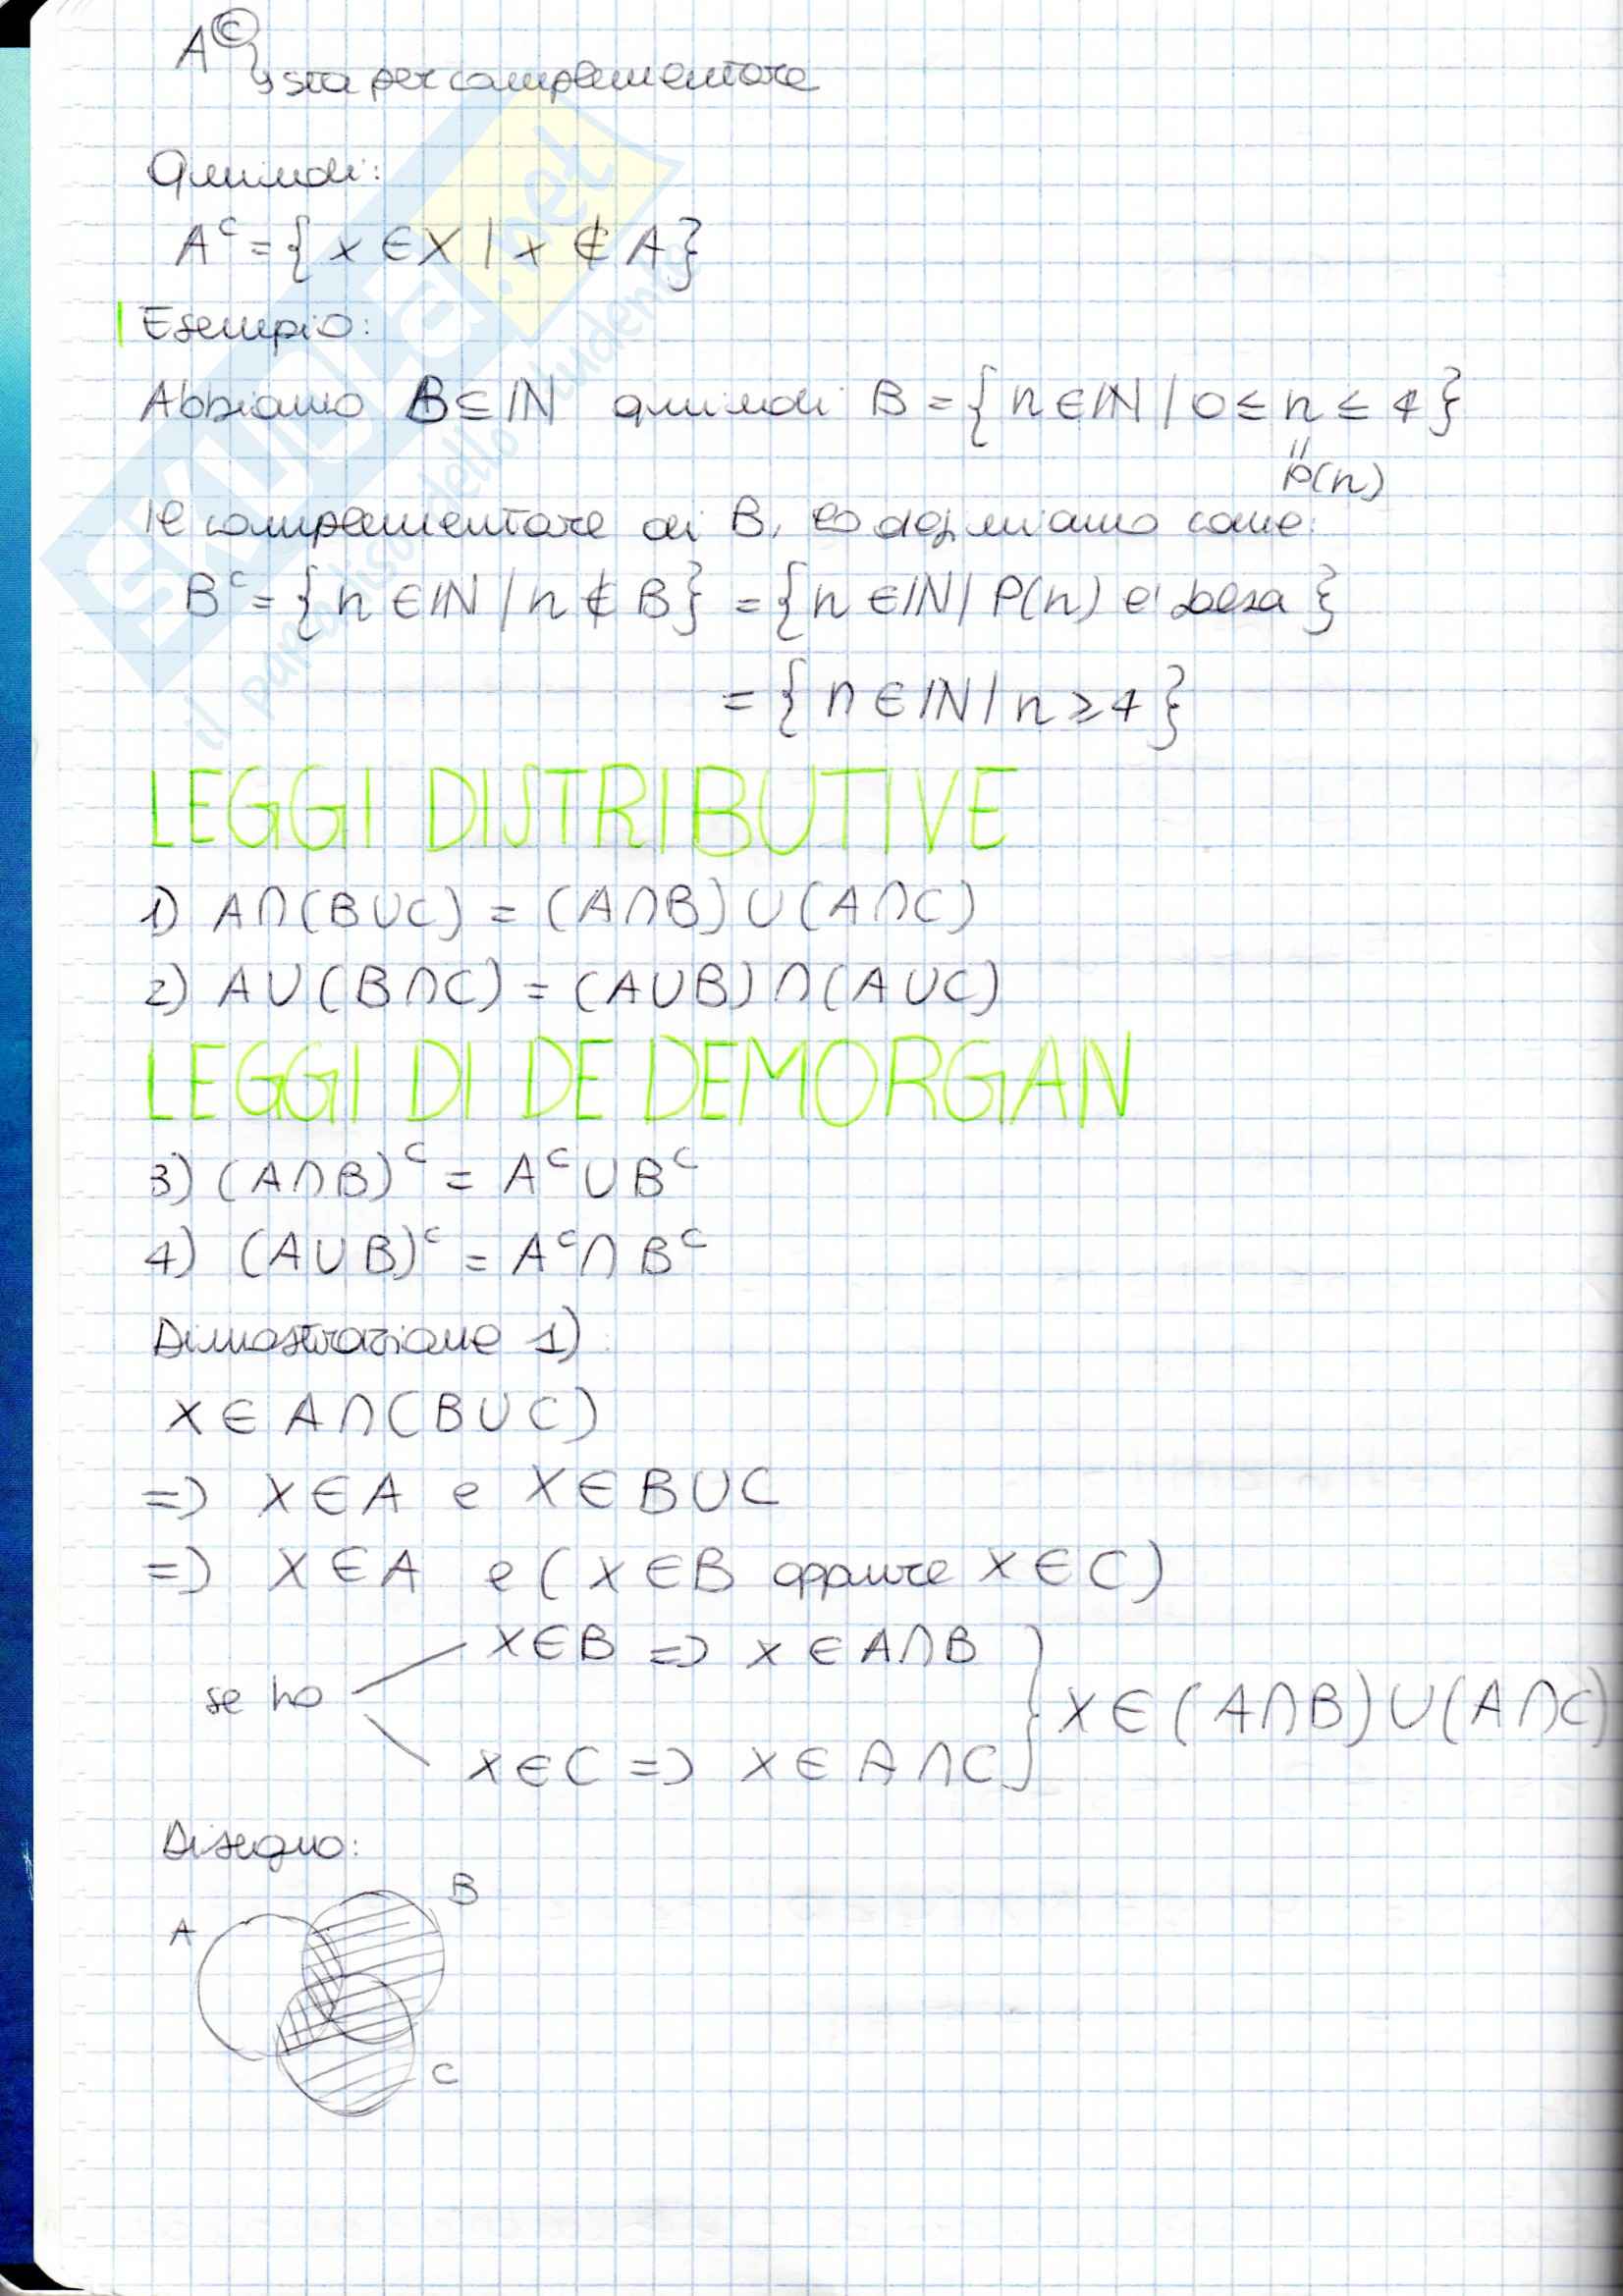 A^c
sta per complementare
Quindi:
A^c = { x ∈ X | x ∉ A }
Esempio:
Abbiamo B ⊆ ℕ quindi B = { n ∈ ℕ | 0 ≤ n ≤ 4 }
" p(n)
Il complementare di B, lo definiamo come:
B^c = { n ∈ ℕ | n ∉ B } = { n ∈ ℕ | P(n) e'
= { n ∈ ℕ | n ≥ 4 }
LEGGI DISTRIBUTIVE
1) A∩(B∪C) = (A∩B)∪(A∩C)
2) A∪(B∩C) = (A∪B)∩(A∪C)
LEGGI DI DE DEMORGAN
3) (A∩B)^c = A^c ∪ B^c
4) (A∪B)^c = A^c ∩ B^c
Dimostrazione 1)
X ∈ A∩(B∪C)
=> X ∈ A e X ∈ B∪C
=> X ∈ A e ( X ∈ B oppure X ∈ C )
X ∈ B => X ∈ A∩B
se ho } X ∈ (A∩B)∪(A∩C)
X ∈ C => X ∈ A∩C
Disegno:
B
A
C
SKUOLA.net
il paradiso dello studente